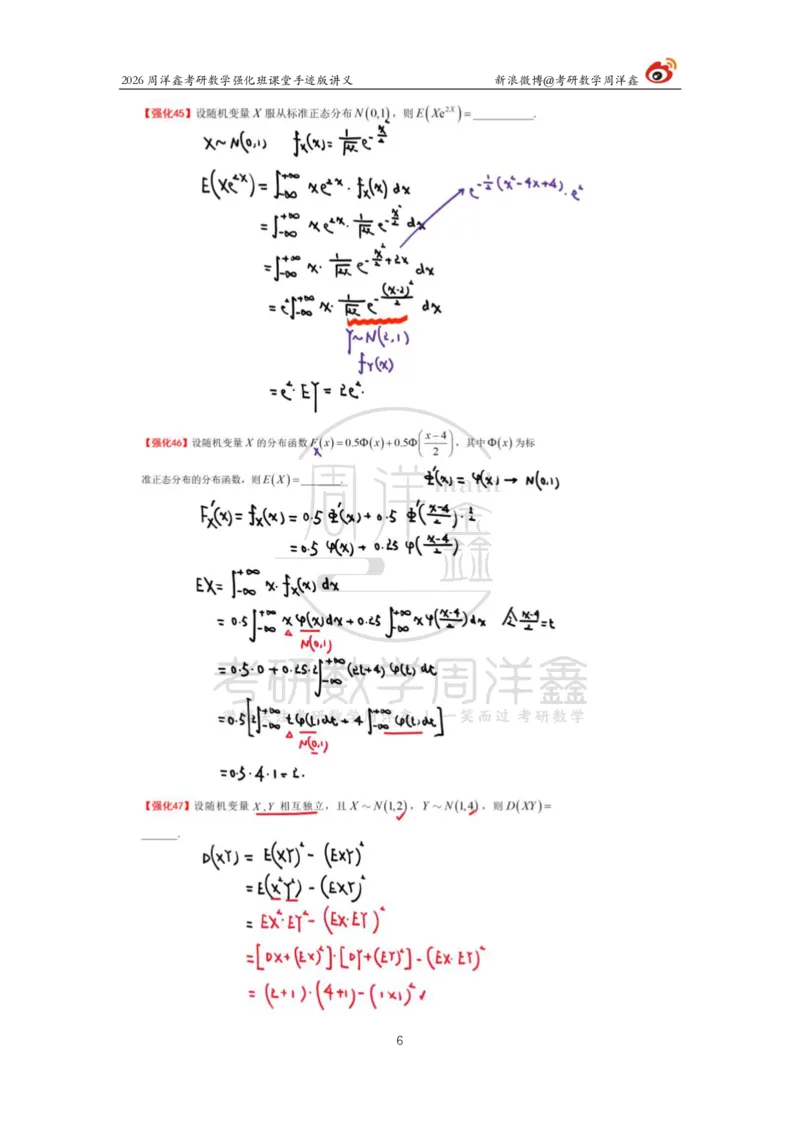 2026 周洋鑫考研数学强化班课堂手迹版讲义 新浪微博@考研数学周洋鑫
【强化45】设随机变量 X 服从标准正态分布 N(0,1)，则 E(Xe^{2X}) = ________.
X~N(0,1) f_X(x)= \frac{1}{\sqrt{2π}} e^{-\frac{x^2}{2}}
E(Xe^{2X}) = ∫_{-∞}^{+∞} xe^{2x}·f_X(x) dx
= ∫_{-∞}^{+∞} xe^{2x}·\frac{1}{\sqrt{2π}} e^{-\frac{x^2}{2}} dx
= ∫_{-∞}^{+∞} x·\frac{1}{\sqrt{2π}} e^{-\frac{x^2}{2}+2x} dx
e^{-\frac{1}{2}(x^2-4x+4)}·e^2
= e^2∫_{-∞}^{+∞} x·\frac{1}{\sqrt{2π}} e^{-\frac{(x-2)^2}{2}} dx
Y~N(2,1)
f_Y(x)
= e^2·EY = 2e^2.
【强化46】设随机变量 X 的分布函数 F_X(x)=0.5Φ(x)+0.5Φ(\frac{x-4}{2})，其中 Φ(x) 为标
准正态分布的分布函数，则 E(X) = ________.
Φ'(x) = φ(x) → N(0,1)
F_X'(x) = f_X(x) = 0.5 Φ'(x) + 0.5 Φ'(\frac{x-4}{2})·\frac{1}{2}
= 0.5 φ(x) + 0.25 φ(\frac{x-4}{2})
EX = ∫_{-∞}^{+∞} x·f_X(x) dx
= 0.5∫_{-∞}^{+∞} xφ(x)dx + 0.25∫_{-∞}^{+∞} xφ(\frac{x-4}{2})dx 令\frac{x-4}{2}=t
N(0,1)
= 0.5·0 + 0.25·2∫_{-∞}^{+∞} (2t+4) φ(t) dt
= 0.5[2∫_{-∞}^{+∞} tφ(t)dt + 4∫_{-∞}^{+∞} φ(t)dt]
N(0,1)
= 0.5·4·1 = 2.
【强化47】设随机变量 X,Y 相互独立，且 X ~ N(1,2)，Y ~ N(1,4)，则 D(XY) =
______.
D(XY) = E(XY)^2 - (EXY)^2
= E(X^2Y^2) - (EXY)^2
= EX^2·EY^2 - (EX·EY)^2
= [DX+(EX)^2]·[DY+(EY)^2] - (EX·EY)^2
= (2+1)·(4+1) - (1×1)^2 ✓
6
周洋鑫
math
考研数学周洋鑫